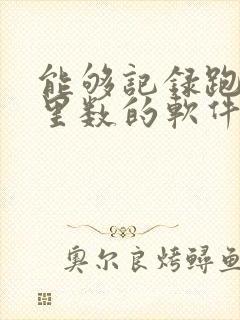 能够記録跑
里数的軟件
奥尔良烤鱘鱼